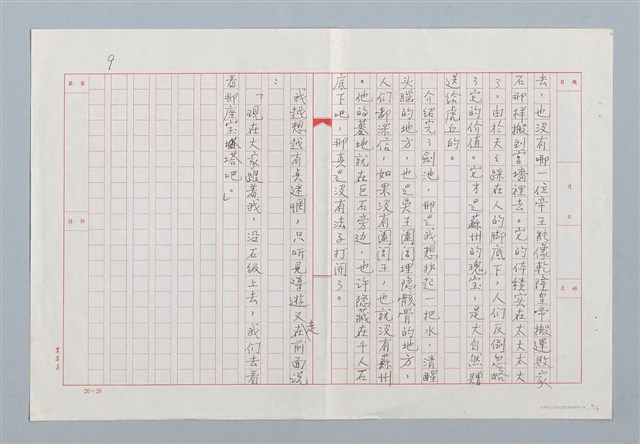 9
去，也沒有哪一位帝王能像乾隆皇帝搬運敗家
石那样搬到宫墙裡去。它的体積实在太大太大
了。由於天天踩在人的脚底下，人们反倒忽略
了它的价值。它才是蘇州的瑰宝，是大自然贈
送给虎丘的。
介绍完了剑池，那是我想抄起一把水，清醒
头脑的地方，也是吴王阖闾埋隐骸骨的地方，
人们都深信，如果没有阖闾王，也就沒有蘇州
。他的墓地就在巨石旁边，也许隐藏在千人石
底下吧，那真是沒有法子打開了。
我越想越有美迷惘，只听見導遊又走在前面说
：
「现在大家跟着我，沿石级上去，我们去看
看那座宝塔吧。」
20×20